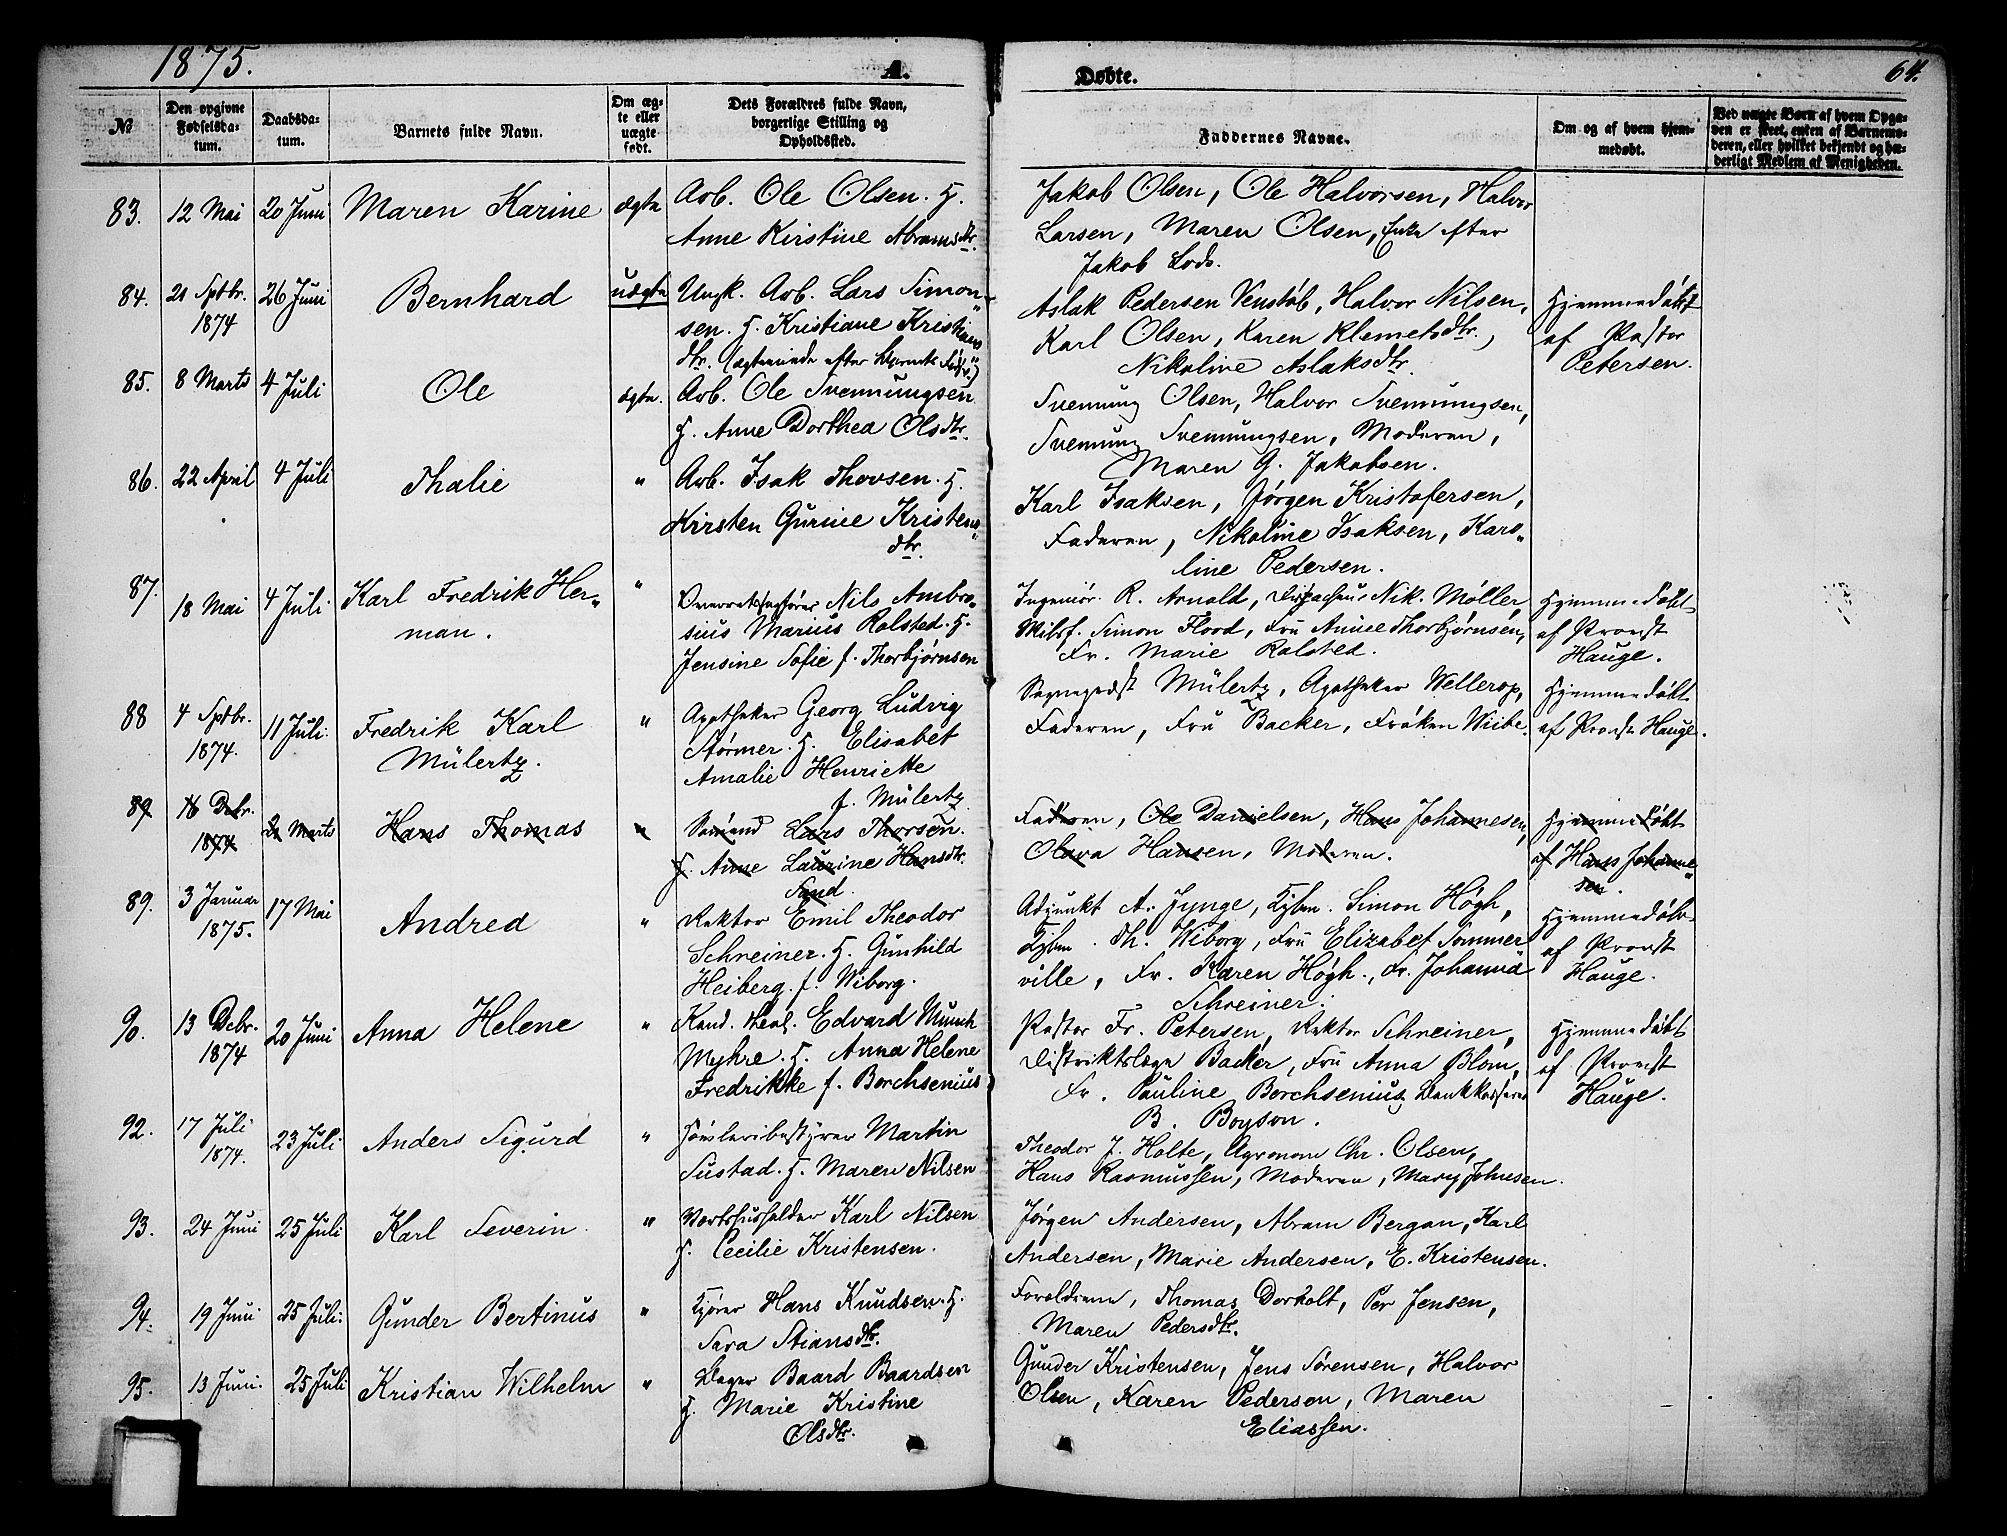 1875.
A.
Døbte.
64.
№
Den opgivne Fødselsdatum.
Daabsdatum.
Barnets fulde Navn.
Om ægte eller uægte født.
Dets Forældres fulde Navn, borgerlige Stilling og Opholdssted.
Faddernes Navne.
Om og af hvem hjemmedøbt.
Ved uægte Børn af hvem Opgaven er skeet, enten af Barnemoderen, eller hvilket bekjendt og hæderligt Medlem af Menigheden.
83. 12 Mai 20 Juni Maren Karine ægte Arb. Ole Olsen. H.
Anne Kirstine Abramsdtr.
Jakob Olsen, Ole Halvorsen, Halvor
Larsen, Maren Olsen, Enke efter
Jakob Lods.
84. 21 Sptbr. 1874 26 Juni Bernhard uægte Ungk. Arb. Lars Simon-
sen. H. Kristiane Kristians
dtr. (ægteviede efter Barnets Føds.)
Aslak Pedersen Venstøb, Halvor Nilsen,
Karl Olsen, Karen Klemetsdtr.,
Nikoline Aslaksdtr.
Hjemmedøbt
af Pastor
Petersen.
85. 8 Marts 4 Juli Ole ægte. Arb. Ole Svennungsen
H. Anne Dorthea Olsdtr.
Svennung Olsen, Halvor Svennungsen,
Svennung Svennungsen, Moderen,
Maren G. Jakobsen.
86. 22 April 4 Juli Thalie " Arb. Isak Thovsen. H.
Kirsten Gurine Kristens"
dtr.
Karl Isaksen, Jørgen Kristofersen,
Faderen, Nikoline Isaksen, Karo"
line Pedersen.
87. 18 Mai 4 Juli Karl Fredrik Her"
man. " Overretssagfører Nils Ambro"
sius Marius Rolsted. H.
Jensine Sofie f. Thorbjørnsen
Ingeniør. R. Arnold, Dispacheur Nik. Møller,
Skibsf. Simon Flood, Fru Annee Thorbjørnsen,
Fr. Marie Rolsted.
Hjemmedøbt
af Provst
Hauge.
88 4 Sptbr. 1874. 11 Juli. Fredrik Karl
Mülertz. " Apotheker Georg Ludvig
Størmer. H. Elisabet
Amalie Henriette
f. Mülertz
Sognepræst Mülertz, Apotheker Wellerop,
Faderen, Fru Backer, Frøken Wiibe.
Hjemmedøbt
af Provst Hauge.
89. 16 Debr. 1874 21 Marts Hans Thomas " Sømand Lars Thorsen.
H. Anne Laurine Hansdtr.
Sand.
Faderen, Ole Danielsen, Hans Johannesen,
Olava Hansen, Moderen.
Hjemmedøbt
af Hans Johanne"
sen.
89. 3 Januar 1875. 17 Mai Andrea " Rektor Emil Theodor
Schreiner. H. Gunhild
Heiberg f. Wiborg.
Adjunkt A. Jynge, Kjbm. Simon Høgh,
Kjbm. Th. Wiborg, Fru Elizabet Sommer
ville, Fr. Karen Høgh, Fr. Johanna
Schreiner.
Hjemmedøbt
af Provst
Hauge.
90. 13 Debr. 1874 20 Juni Anna Helene " Kand. theol. Edvard Munch
Myhre. H. Anna Helene
Fredrikke f. Borchsenius
Pastor Fr. Petersen, Rektor Schreiner,
Distriktslæge Backer, Fru Anna Blom,
Fr. Pauline Borchsenius, Bankkasserer
B. Boyson.
Hjemmedøbt
af Provst
Hauge.
92. 17 Juli 1874. 23 Juli Anders Sigurd " Høvleribestyrer Martin
Sustad. H. Maren Nilsen
Theodor J. Holte, Agronom Chr. Olsen,
Hans Rasmussen, Moderen, Mary Johnsen.
93. 24 Juni 25 Juli Karl Severin. " Vertshusholder Karl Nilsen
H. Cecilie Kristensen.
Jørgen Andersen, Abram Bergan, Karl
Andersen, Marie Andersen, E. Kristensen.
94. 19 Juni 25 Juli. Gunder Bertinus " Kjører Hans Knudsen. H.
Sara Stiansdtr.
Forældrene, Thomas Dorholt, Per Jensen,
Maren Pedersdtr.
95. 13 Juni. 25 Juli Kristian Wilhelm " Bager Baard Baardsen
H. Marie Kristine
Olsdtr.
Gunder Kristensen, Jens Sørensen, Halvor
Olsen, Karen Pedersen, Maren
Eliassen.